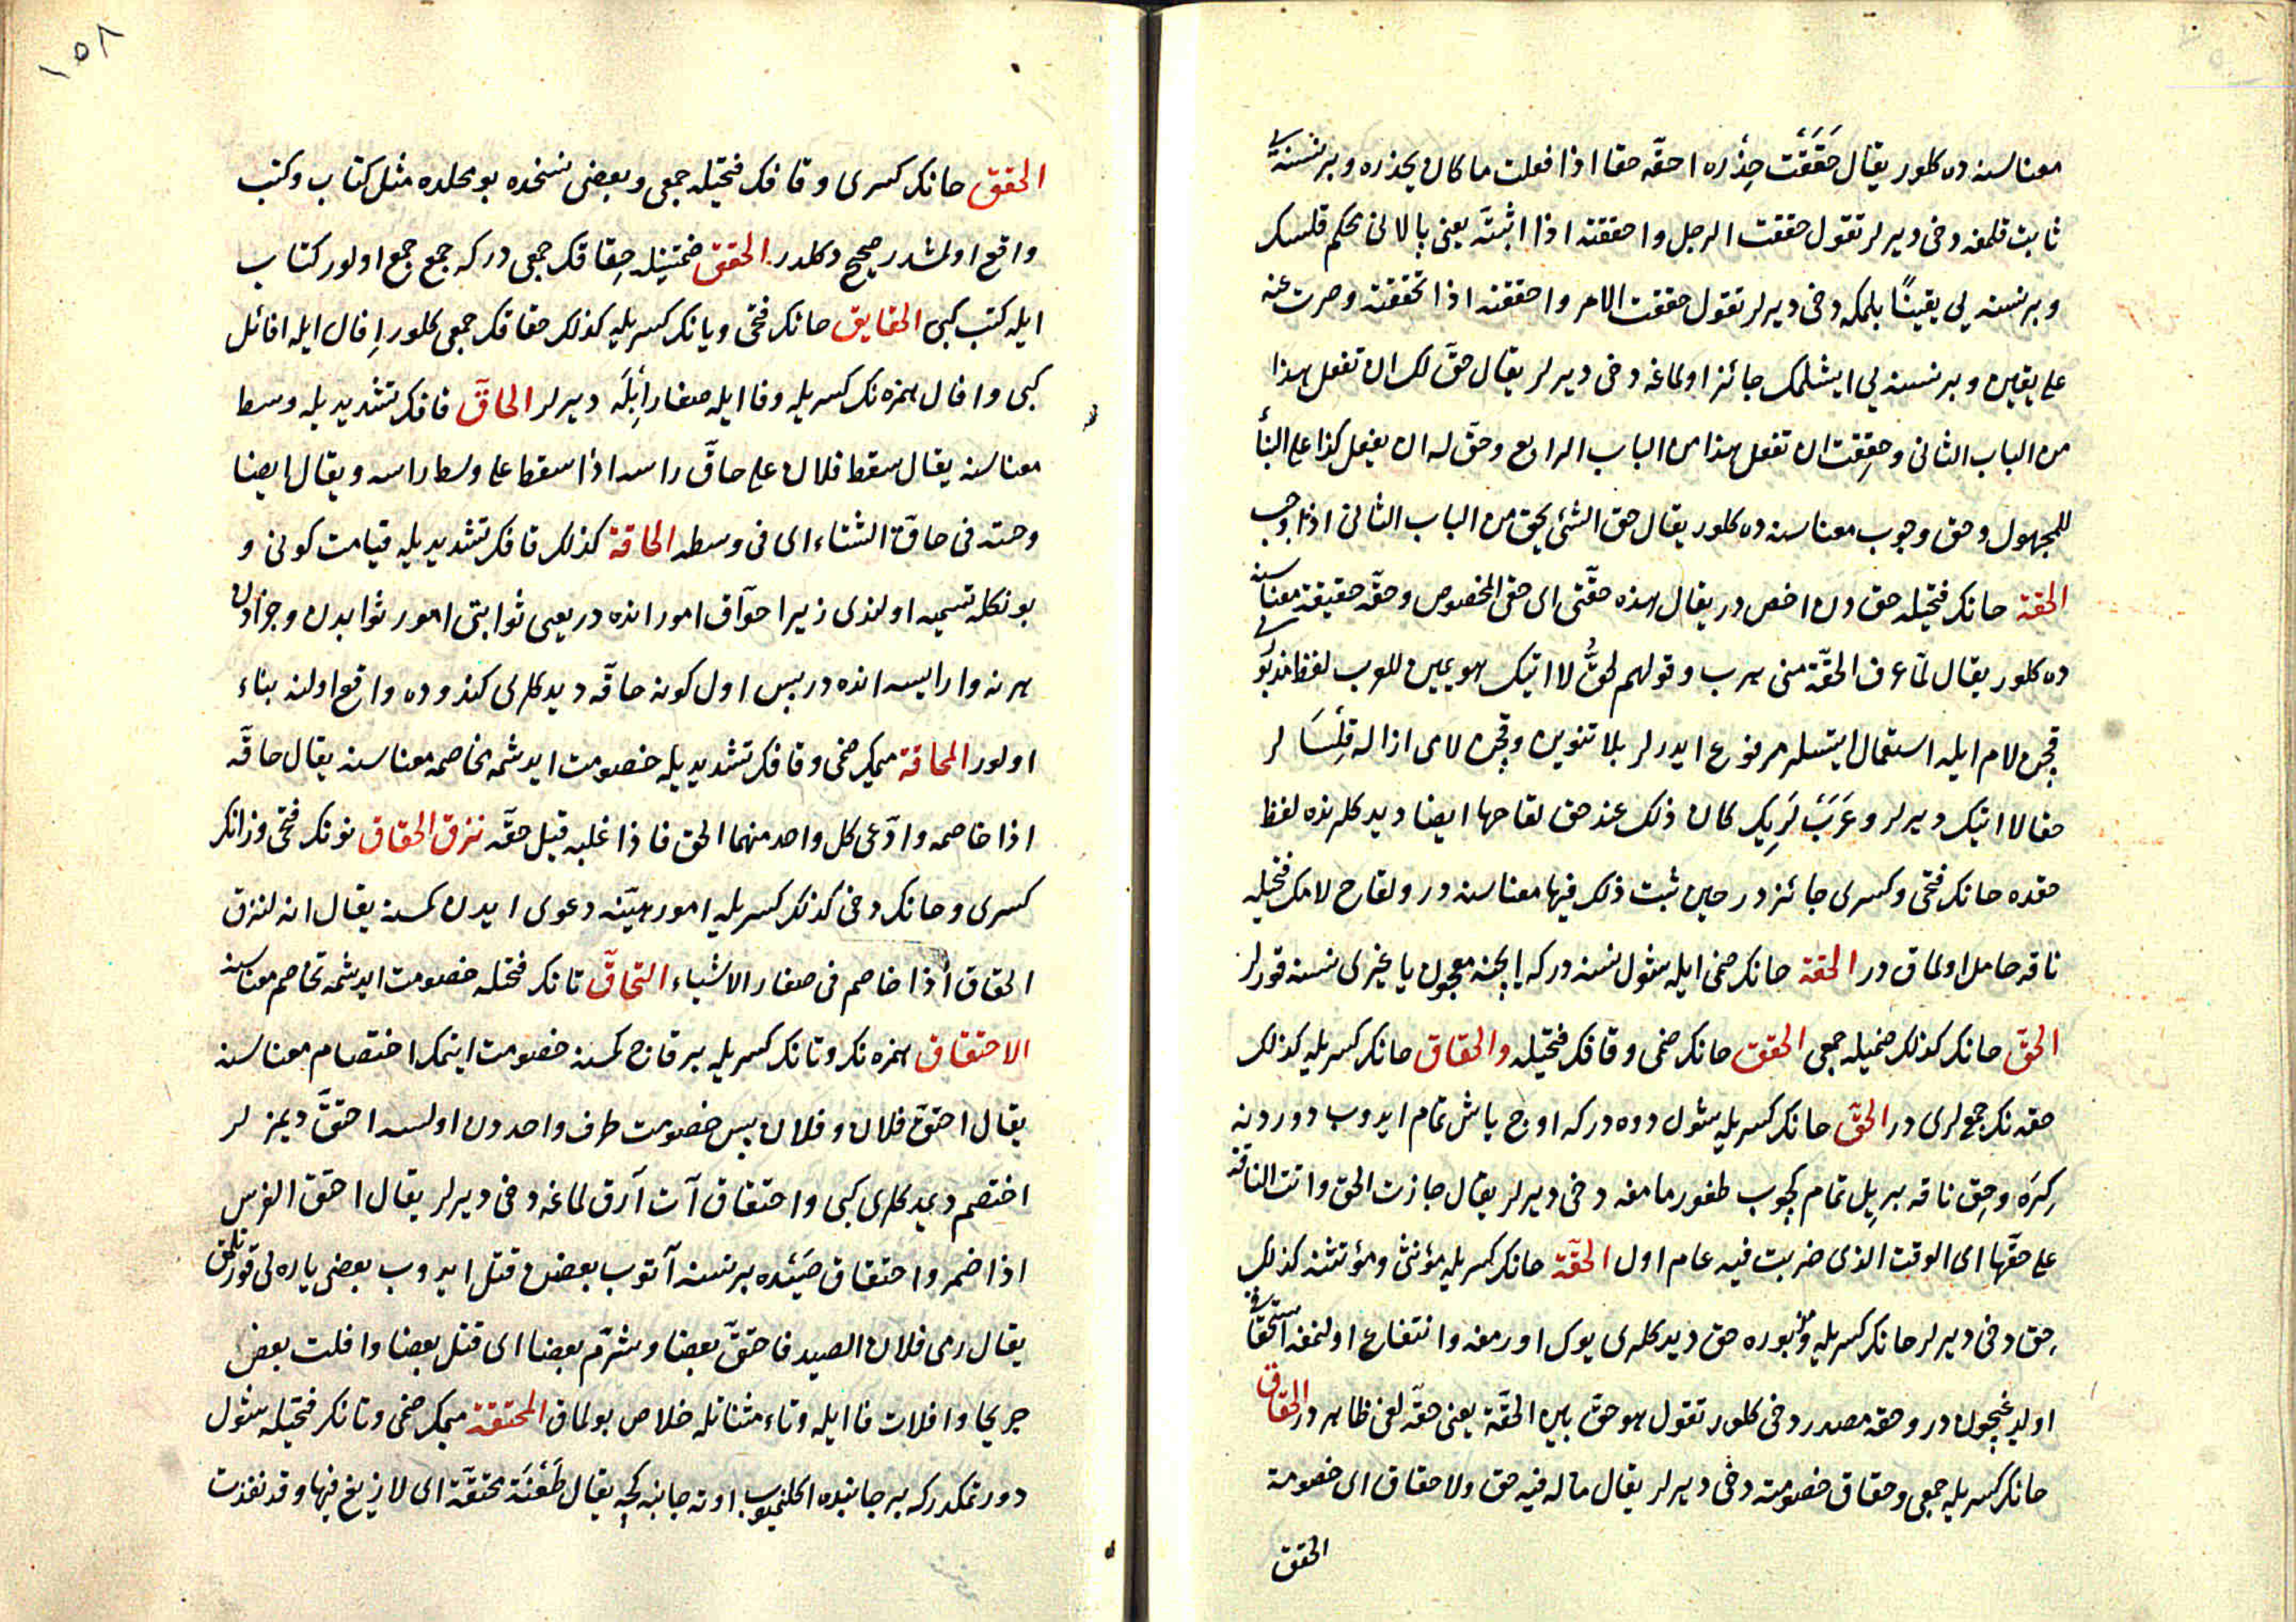 معناسنه ده كلور يقال حَقَقْت حِذْره احقّه حقا اذا فعلت ما كان يحذره وبر نسنه يى
ثابت قلمغه دخى ديرلر تقول حققت الرجل واحققته اذا اثبتّه يعنى بالانى محكم قلسك
وبر نسنه يى يقينًا بلمكه دخى ديرلر تقول حققت الامر واحققته اذا تحققته وصرت عنه
على يقين وبر نسنه يى ايشلمك جائز اولماغه دخى ديرلر يقال حقّ لك ان تفعل هذا
من الباب الثانى وحقِقت ان تفعل هذا من الباب الرابع وحقّ له ان يفعل كذا على البنأ
للمجهول وحق وجوب معناسنه ده كلور يقال حق الشئ يحق من الباب الثانى اذا وجب
الحقة حانك فتحيله حق دن اخص در يقال هذه حقّتى اى حقى المخصوص وحقّه حقيقة معناسنه
ده كلور يقال لمّا عرف الحقّة منى هرب وقولهم لحقُّ لا اتيك هو يمين للعرب لفظ مذبورى
قچن لام ايله استعمال ايتسلر مرفوع ايدرلر بلا تنوين وقچن لامى ازاله قِلْسَا لر
حقا لا اتيك ديرلر وعَرَبَ لَرِيك كان ذلك عند حق لقاحها ايضا ديدكلرنده لفظ
حقده حانك فتحى وكسرى جائز در حين ثبت ذلك فيها معناسنه در ولقاح لامك فتحيله
ناقه حامل اولماق در الحقة حانك ضمى ايله شول نسنه دركه ايچنه معجون يا غيرى نسنه قورلر
الحق حانك كذلك ضميله جمعى الحقق حانك ضمى وقافك فتحيله والحقاق حانك كسريله كذلك
حقه نك جمعلرى در الحقّ حانك كسريله شول دوه دركه اوچ ياش تمام ايدوب دوردنه
كِرَه وحِق ناقه بر يِل تمام كچوب طغورمامغه دخى ديرلر يقال جازت الحق واتت الناقة
على حقّها اى الوقت الذى ضربت فيه عام اول الحقّة حانك كسريله مؤنثى ومؤنثنه كذلك
حِق دخى ديرلر حانك كسريله ومزبوره حق ديدكلرى يوك اورمغه وانتفاع اولنمغه استحقاقى
اولديغيچون در وحقه مصدر دخى كلور تقول هو حقّ بين الحقّة يعنى حقّه لغى ظاهر در الحقاق
حانك كسريله جمعى وحقاق خصومته دخى ديرلر يقال ماله فيه حق ولا حقاق اى خصومة
الحقق
١٥٨
الحقق حانك كسرى وقافك فتحيله جمعى وبعضى نسخده بو محلده مثل كتاب وكتب
واقع اولمشدر صحيح دكلدر الحقق ضمتينله حِقاقك جمعى دركه جمع جمع اولور كتاب
ايله كتب كبى الحقايق حانك فتحى ويانك كسريله كذلك حقاقك جمعى كلور اِفال ايله افائل
كبى وافال همزه نك كسريله وفا ايله صغار اِبِلَه ديرلر الحاقّ قافك تشديديله وسط
معناسنه يقال سقط فلان على حاقّ راسه اذا سقط على وسط راسه ويقال ايضا
وجئته فى حاقّ الشتاء اى فى وسطه الحاقة كذلك قافك تشديديله قيامت كونى و
بونكله تسميه اولندى زيرا حواقّ امور انده در يعنى ثوابتى امور ثوابدن وجزادن
هر نه وارايسه انده در پس اول كونه حاقّه ديدكلرى كندوده واقع اولنه بناء
اولور المحاقة ميمك ضمى وقافك تشديديله خصومت ايدشمه مخاصمه معناسنه يقال حاقّه
اذا خاصمه وادّعى كل واحد منهما الحق فاذا غلبه قيل حقّه نزق الحقاق نونك فتحى وزانك
كسرى وحانك دخى كذلك كسريله امور هيّنه دعوى ايدن كمسنه يقال انه لنزق
الحقاق اذا خاصم فى صغار الاشياء التحاقّ تانك فتحله خصومت ايدشمه تخاصم معناسنه
الاحتقاق همزه نك وتانك كسريله بر قاچ كمسنه خصومت ايتمك اختصام معناسنه
يقال احتقّ فلان وفلان پس خصومت طرف واحددن اولسه احتقّ ديمز لر
اختصم ديمدكلرى كبى واحتقاق آت آرقلماغه دخى ديرلر يقال احتقّ الفرس
اذا ضمر واحتقاق صَيْده بر نسنه آتوب بعضن قتل ايدوب بعضى ياره لى قورتلمق
يقال رمى فلان الصيد فاحتقّ بعضا وشرّم بعضا اى قتل بعضا وافلت بعض
جريحا وافلات فا ايله وتاء مثناتله خلاص بولماق المحتقة ميمك ضمى وتانك فتحيله شول
دورتمكدركه بر جانبده اكلنميوب اوته جانبه كچه يقال طَعْنَة محتقّة اى لا زيغ فيها وقد نفذت